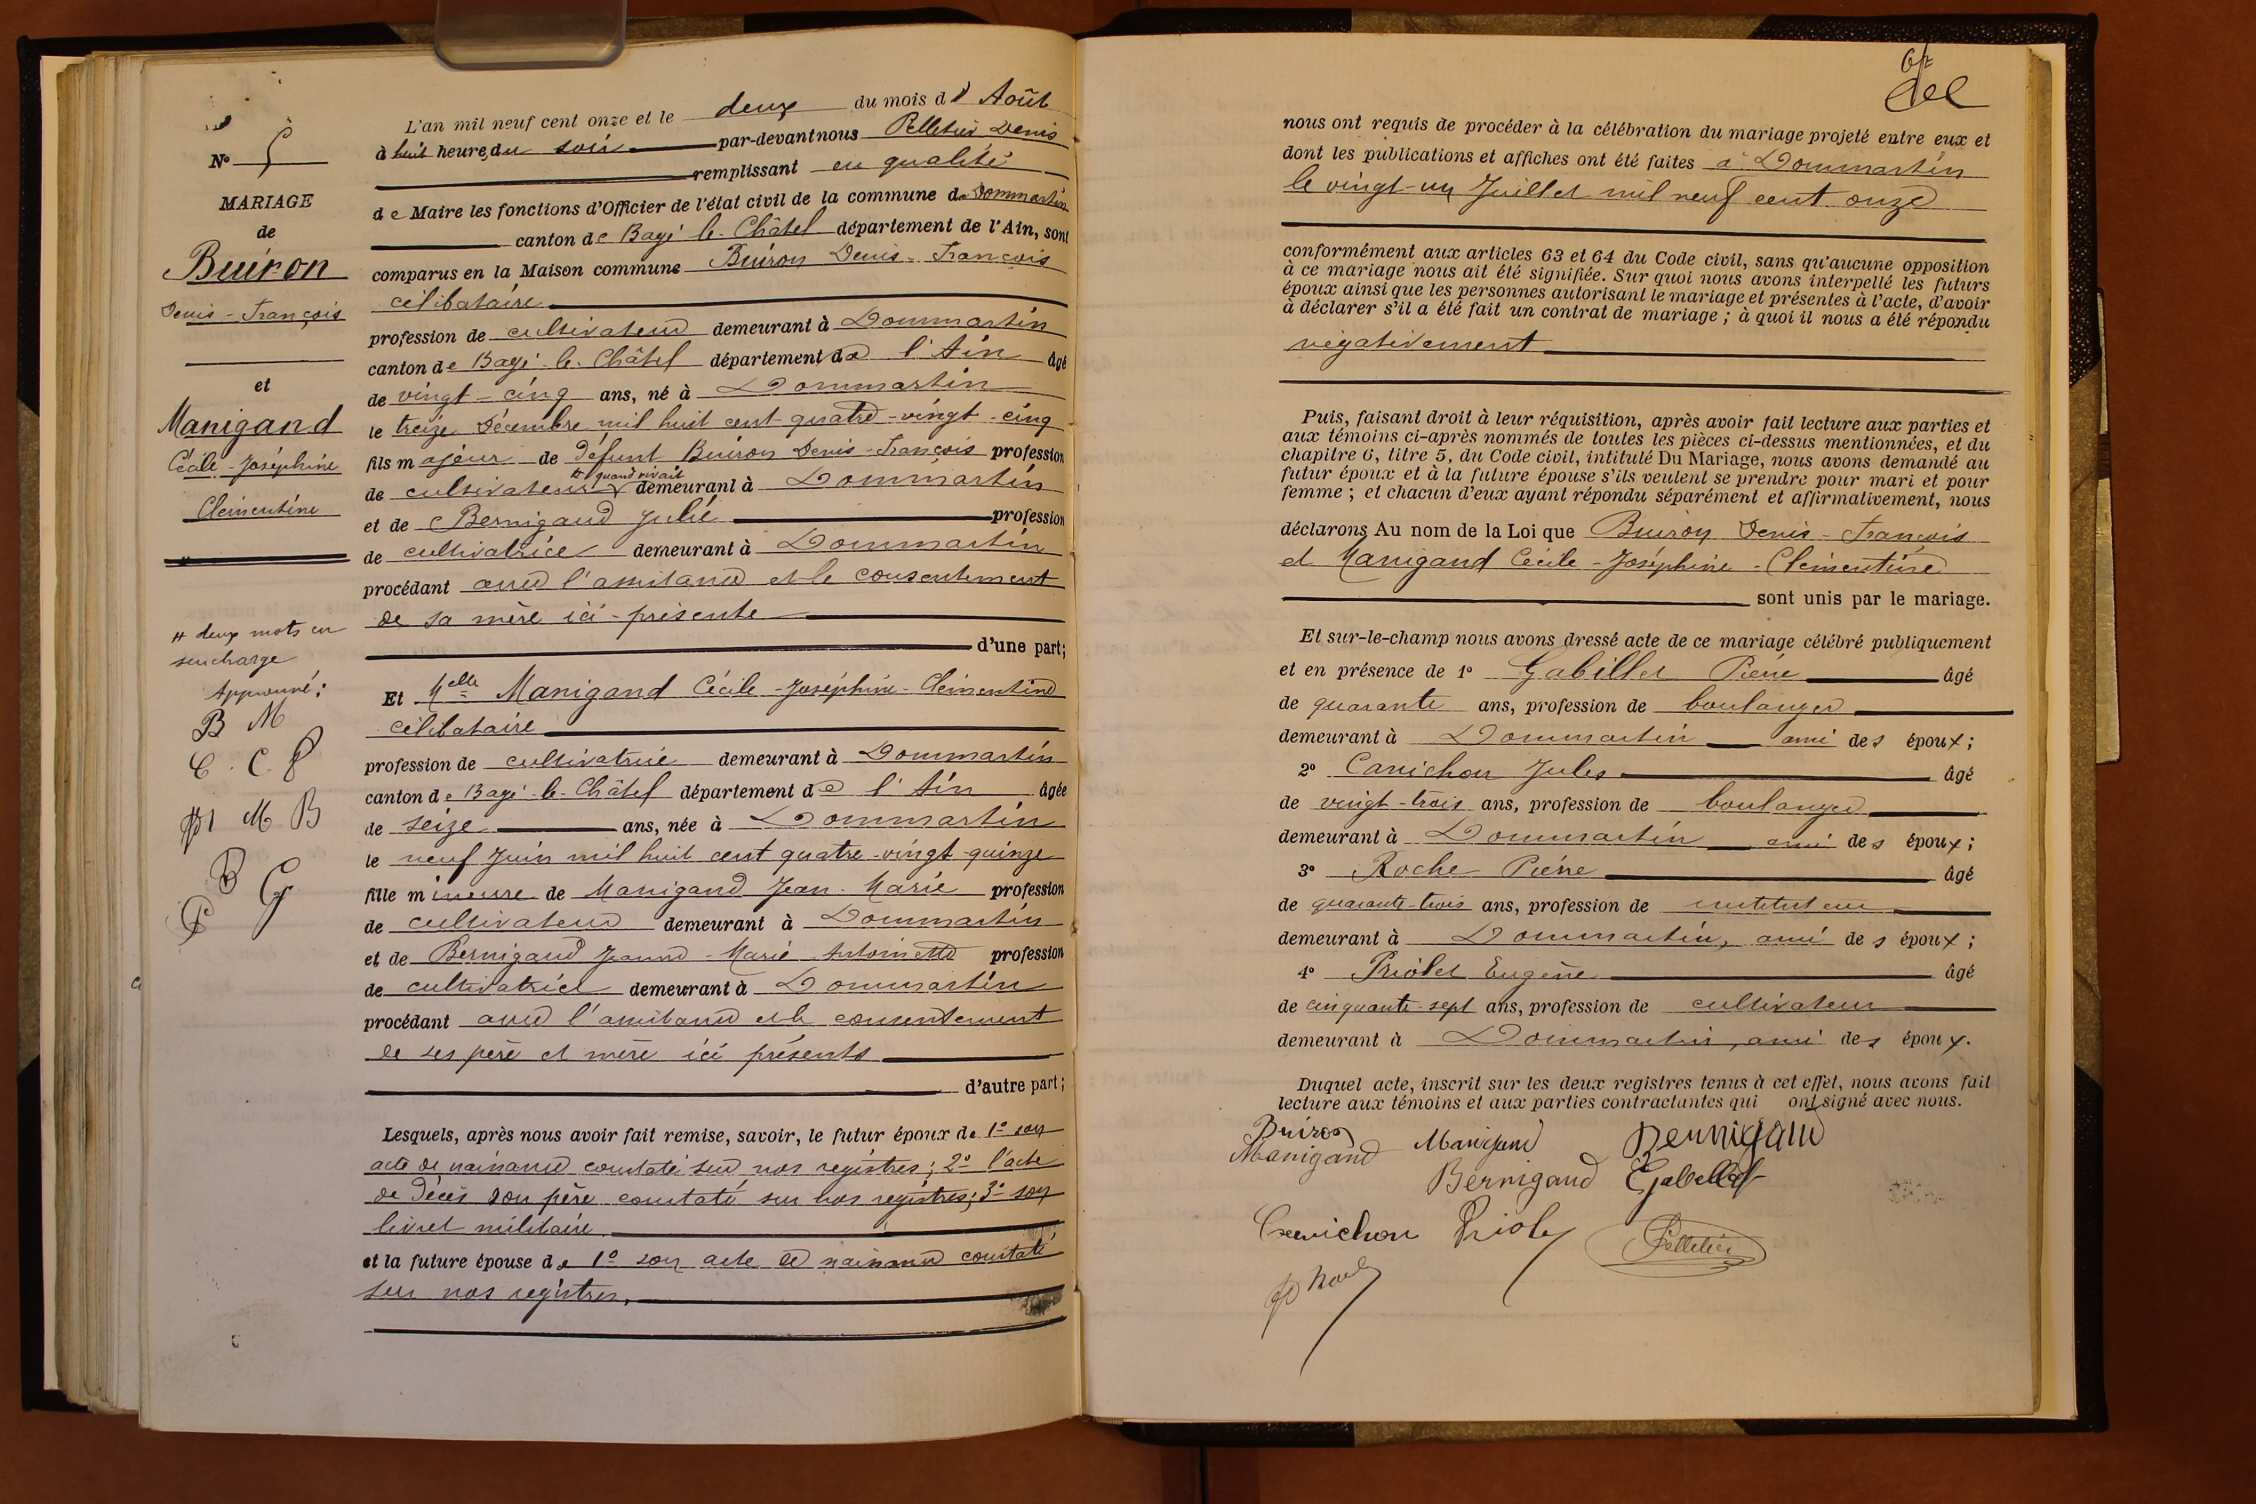 N° 5
MARIAGE
de
Buiron
Denis - François
et
Manigand
Cécile - Joséphine
Clémentine
# deux mots en
surcharge
Approuvé :
B M
C. C. P
M B
B G
L'an mil neuf cent onze et le deux du mois d' Août
à huit heure du soir par-devant nous Pelletier Denis
remplissant en qualité
de Maire les fonctions d'Officier de l'état civil de la commune de Dommartin
canton de Bagé le-Châtel département de l'Ain, sont
comparus en la Maison commune Buiron Denis-François
célibataire
profession de cultivateur demeurant à Dommartin
canton de Bagé-le-Châtel département de l'Ain âgé
de vingt-cinq ans, né à Dommartin
le treize Décembre mil huit cent quatre-vingt-cinq
fils majeur de défunt Buiron Denis-François profession
quand vivait
de cultivateur demeurant à Dommartin
et de Bernigaud Julie profession
de cultivatrice demeurant à Dommartin
procédant avec l'assistance et le consentement
de sa mère ici-présente
d'une part;
Et Melle Manigand Cécile-Joséphine-Clémentine
célibataire
profession de cultivatrice demeurant à Dommartin
canton de Bagé-le-Châtel département de l'Ain âgée
de seize ans, née à Dommartin
le neuf Juin mil huit cent quatre-vingt-quinze
fille mineure de Manigand Jean-Marie profession
de cultivateur demeurant à Dommartin
et de Bernigaud Jeanne-Marie Antoinette profession
de cultivatrice demeurant à Dommartin
procédant avec l'assistance et le consentement
de ses père et mère ici présents
d'autre part;
Lesquels, après nous avoir fait remise, savoir, le futur époux de 1° son
acte de naissance constaté sur nos registres; 2° l'acte
de décès son père constaté sur nos registres; 3° son
livret militaire
et la future épouse de 1° son acte de naissance constaté
sur nos registres.
nous ont requis de procéder à la célébration du mariage projeté entre eux et
dont les publications et affiches ont été faites à Dommartin
le vingt-un Juillet mil neuf cent onze
conformément aux articles 63 et 64 du Code civil, sans qu'aucune opposition
à ce mariage nous ait été signifiée. Sur quoi nous avons interpellé les futurs
époux ainsi que les personnes autorisant le mariage et présentes à l'acte, d'avoir
à déclarer s'il a été fait un contrat de mariage ; à quoi il nous a été répondu
négativement
Puis, faisant droit à leur réquisition, après avoir fait lecture aux parties et
aux témoins ci-après nommés de toutes les pièces ci-dessus mentionnées, et du
chapitre 6, titre 5, du Code civil, intitulé Du Mariage, nous avons demandé au
futur époux et à la future épouse s'ils veulent se prendre pour mari et pour
femme ; et chacun d'eux ayant répondu séparément et affirmativement, nous
déclarons Au nom de la Loi que Buiron Denis-François
et Manigand Cécile-Joséphine-Clémentine
sont unis par le mariage.
Et sur-le-champ nous avons dressé acte de ce mariage célébré publiquement
et en présence de 1° Gabillet Pierre âgé
de quarante ans, profession de boulanger
demeurant à Dommartin ami des époux ;
2° Canichon Jules âgé
de vingt-trois ans, profession de boulanger
demeurant à Dommartin ami des époux ;
3° Roche Pierre âgé
de quarante-trois ans, profession de instituteur
demeurant à Dommartin, ami des époux ;
4° Priolet Eugène âgé
de cinquante-sept ans, profession de cultivateur
demeurant à Dommartin, ami des époux.
Duquel acte, inscrit sur les deux registres tenus à cet effet, nous avons fait
lecture aux témoins et aux parties contractantes qui ont signé avec nous.
Buiron Manigand Bernigaud
Manigand Bernigaud Gabillet
Canichon Priolet Pelletier